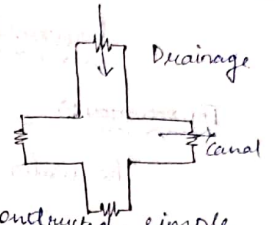 Drainage
Canal
simple